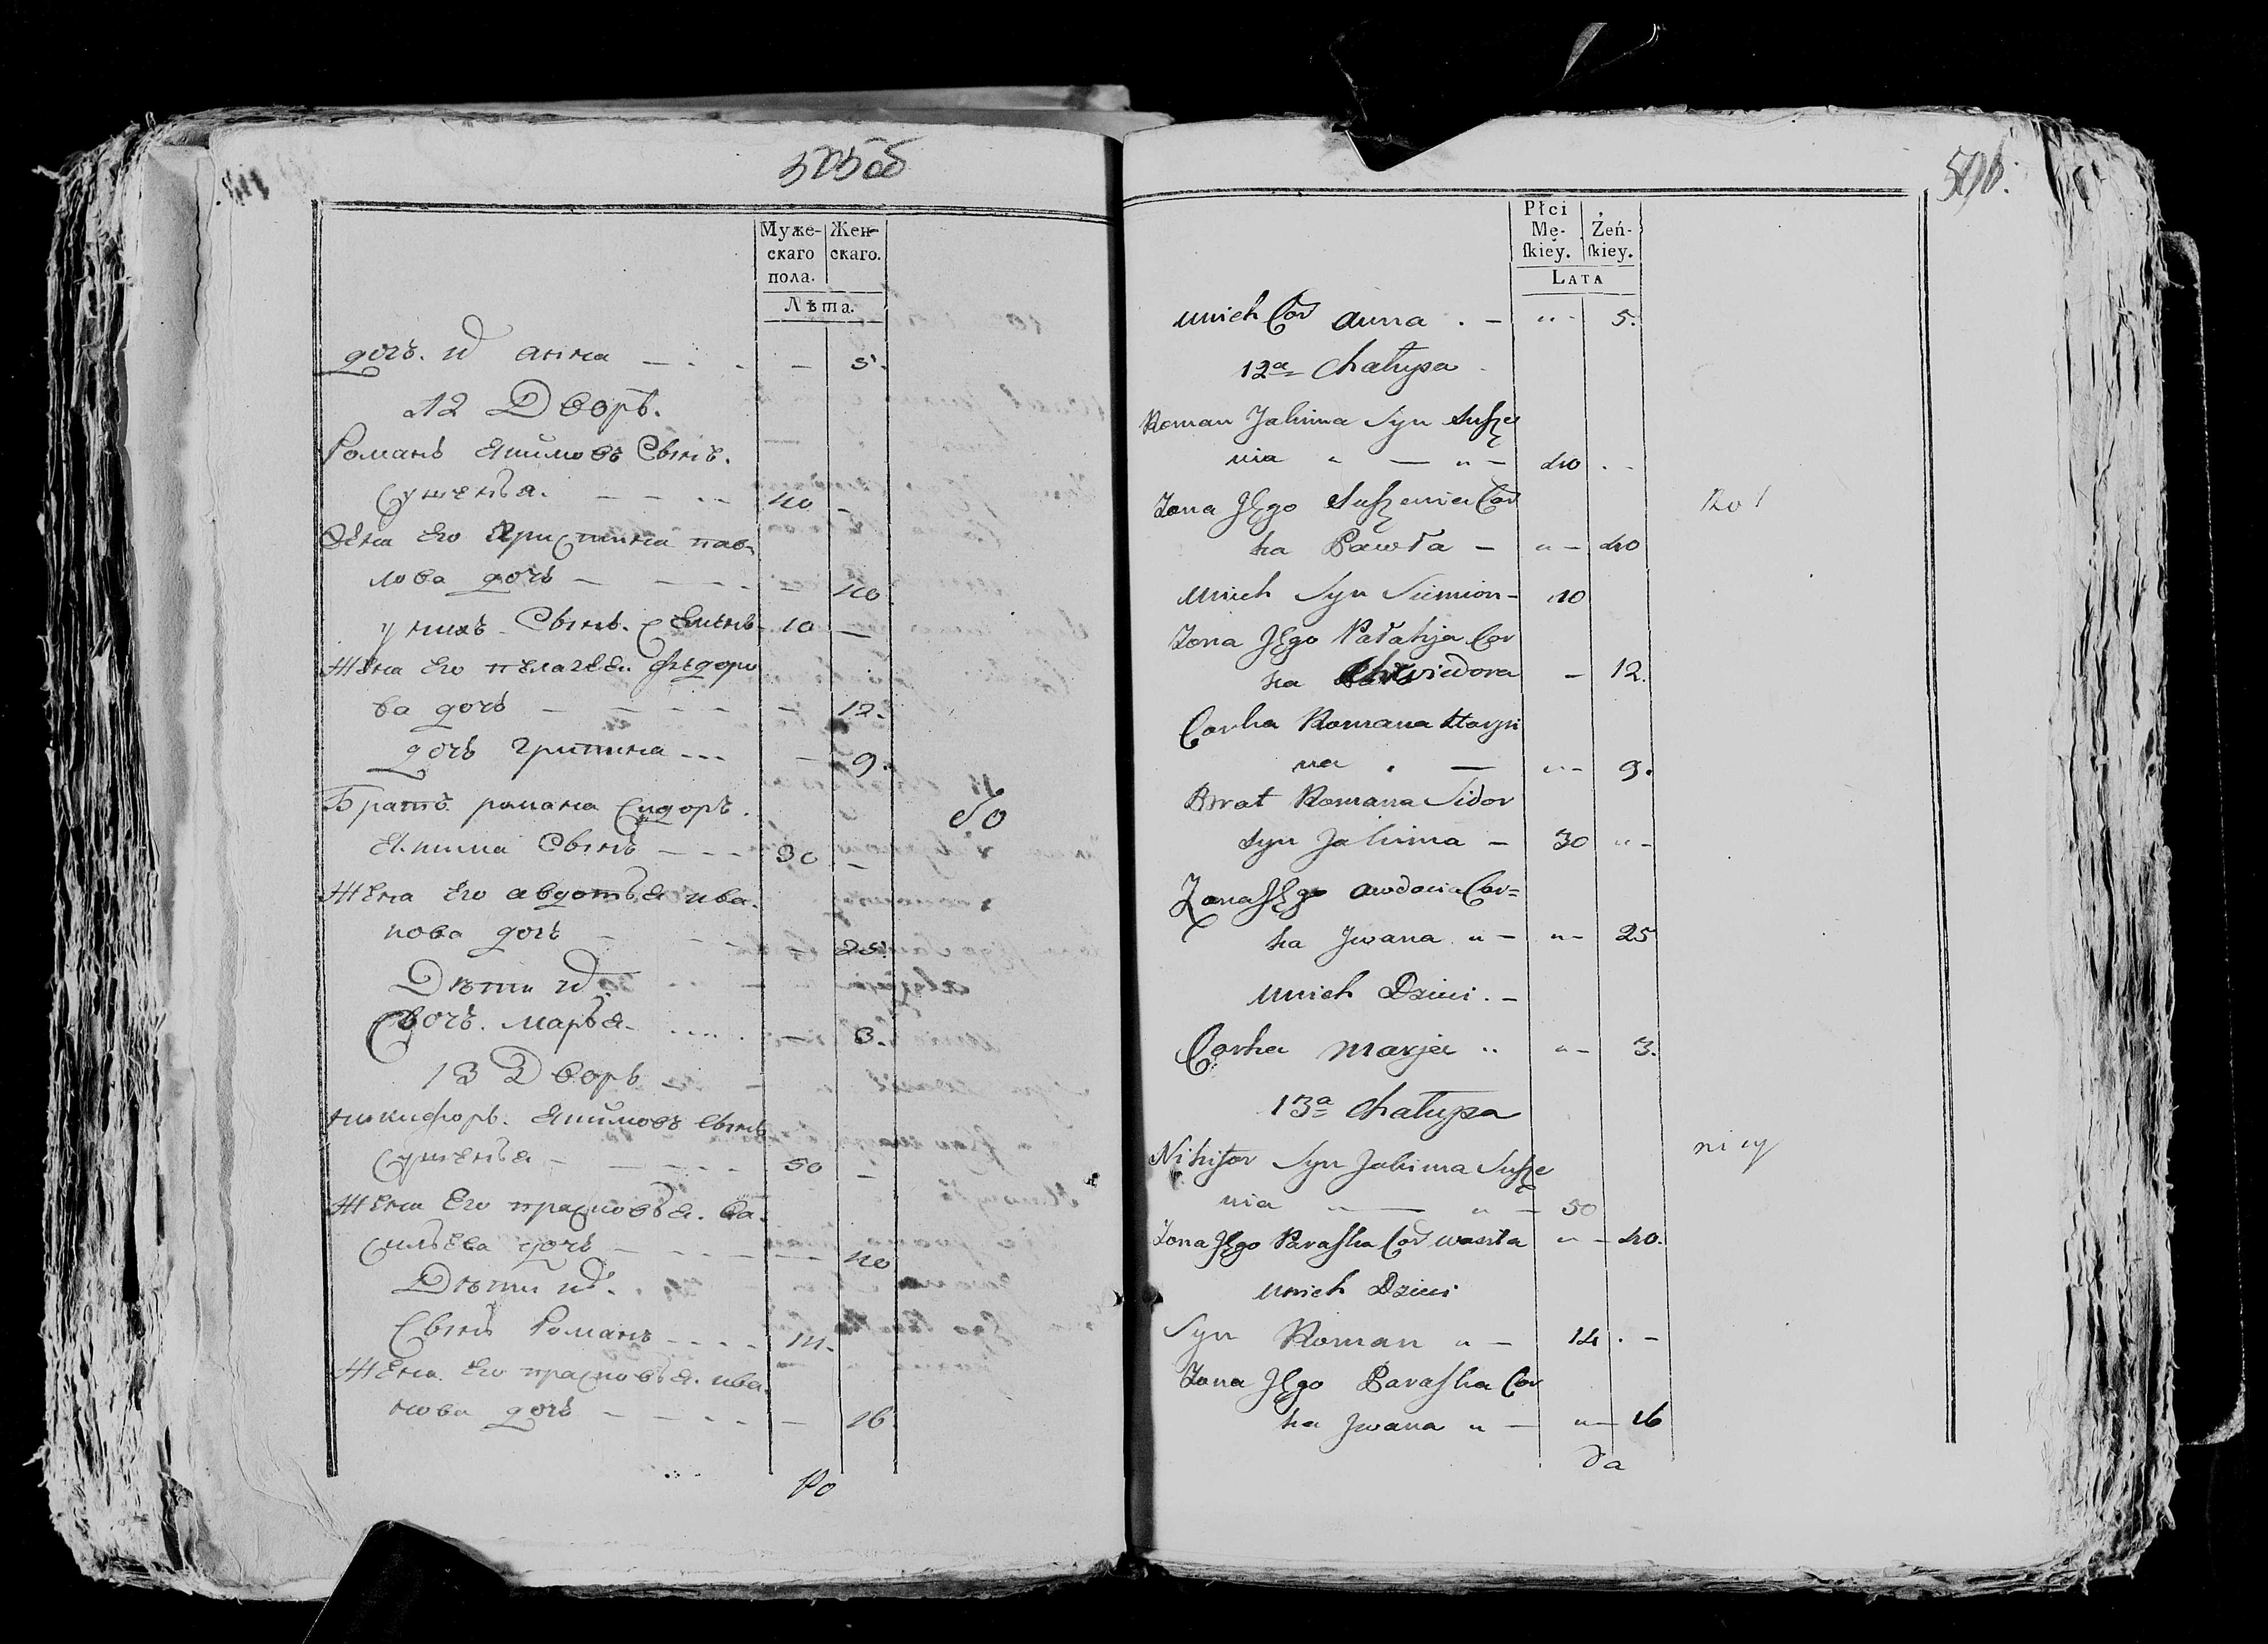 505об
Муже-
скаго
пола.
Жен-
скаго.
Лѣта.
дочъ. их анна — 5.
12 Дворъ.
Романъ Якимовъ Сынъ.
Сушеня. — 40 —
Жена Его Христина пав-
лова дочь — — 40.
у нихъ Сынъ. Семенъ 10 —
Жена Его пелагея федоро
ва дочь — — 12.
дочь грипина — 9.
Братъ романа Сидоръ.
Якима Сынъ — 30 —
Жена Его авдотья ива.
нова дочь — — 25.
Дети их.
дочъ. марья. — 3.
13 Дворъ
никифоръ. Якимовъ Сынъ
Сушеня — 50 —
Жена Его прасковья. ва.
сильева дочь — 40
Дети их.
Сынъ Романъ — 14.
Жена Его прасковья. ива.
нова дочь — — 16.
506.
Płci
Mę-
ſkiey.
Żeń-
ſkiey.
LATA
unich Cor anna . — " - 5.
12a Chałupa
Roman Jakima Syn Suſze
nia " — " — 40 . -
Zona Jego Suſzenia Cor
ka Pawła — " — 40
unich Syn Siemion — 10
Zona Jego Pałahija Cor
ka Chwiedora — 12.
Corka Romana Horpi
na . — " - 9.
Brat Romana Sidor
syn Jakima — 30 " -
Zona Jego awdocia Cor=
ka Jwana " — " - 25
unich Dzieci . —
Corka Marja " " - 3.
13a Chałupa
Nikifor Syn Jakima Suſze
nia " — " — 50
Zona Jego Paraſka Cor wasila " — 40.
unich Dzieci
Syn Roman " — 14 . —
Zona Jego Paraſka Cor
ka Jwana " — " — 16